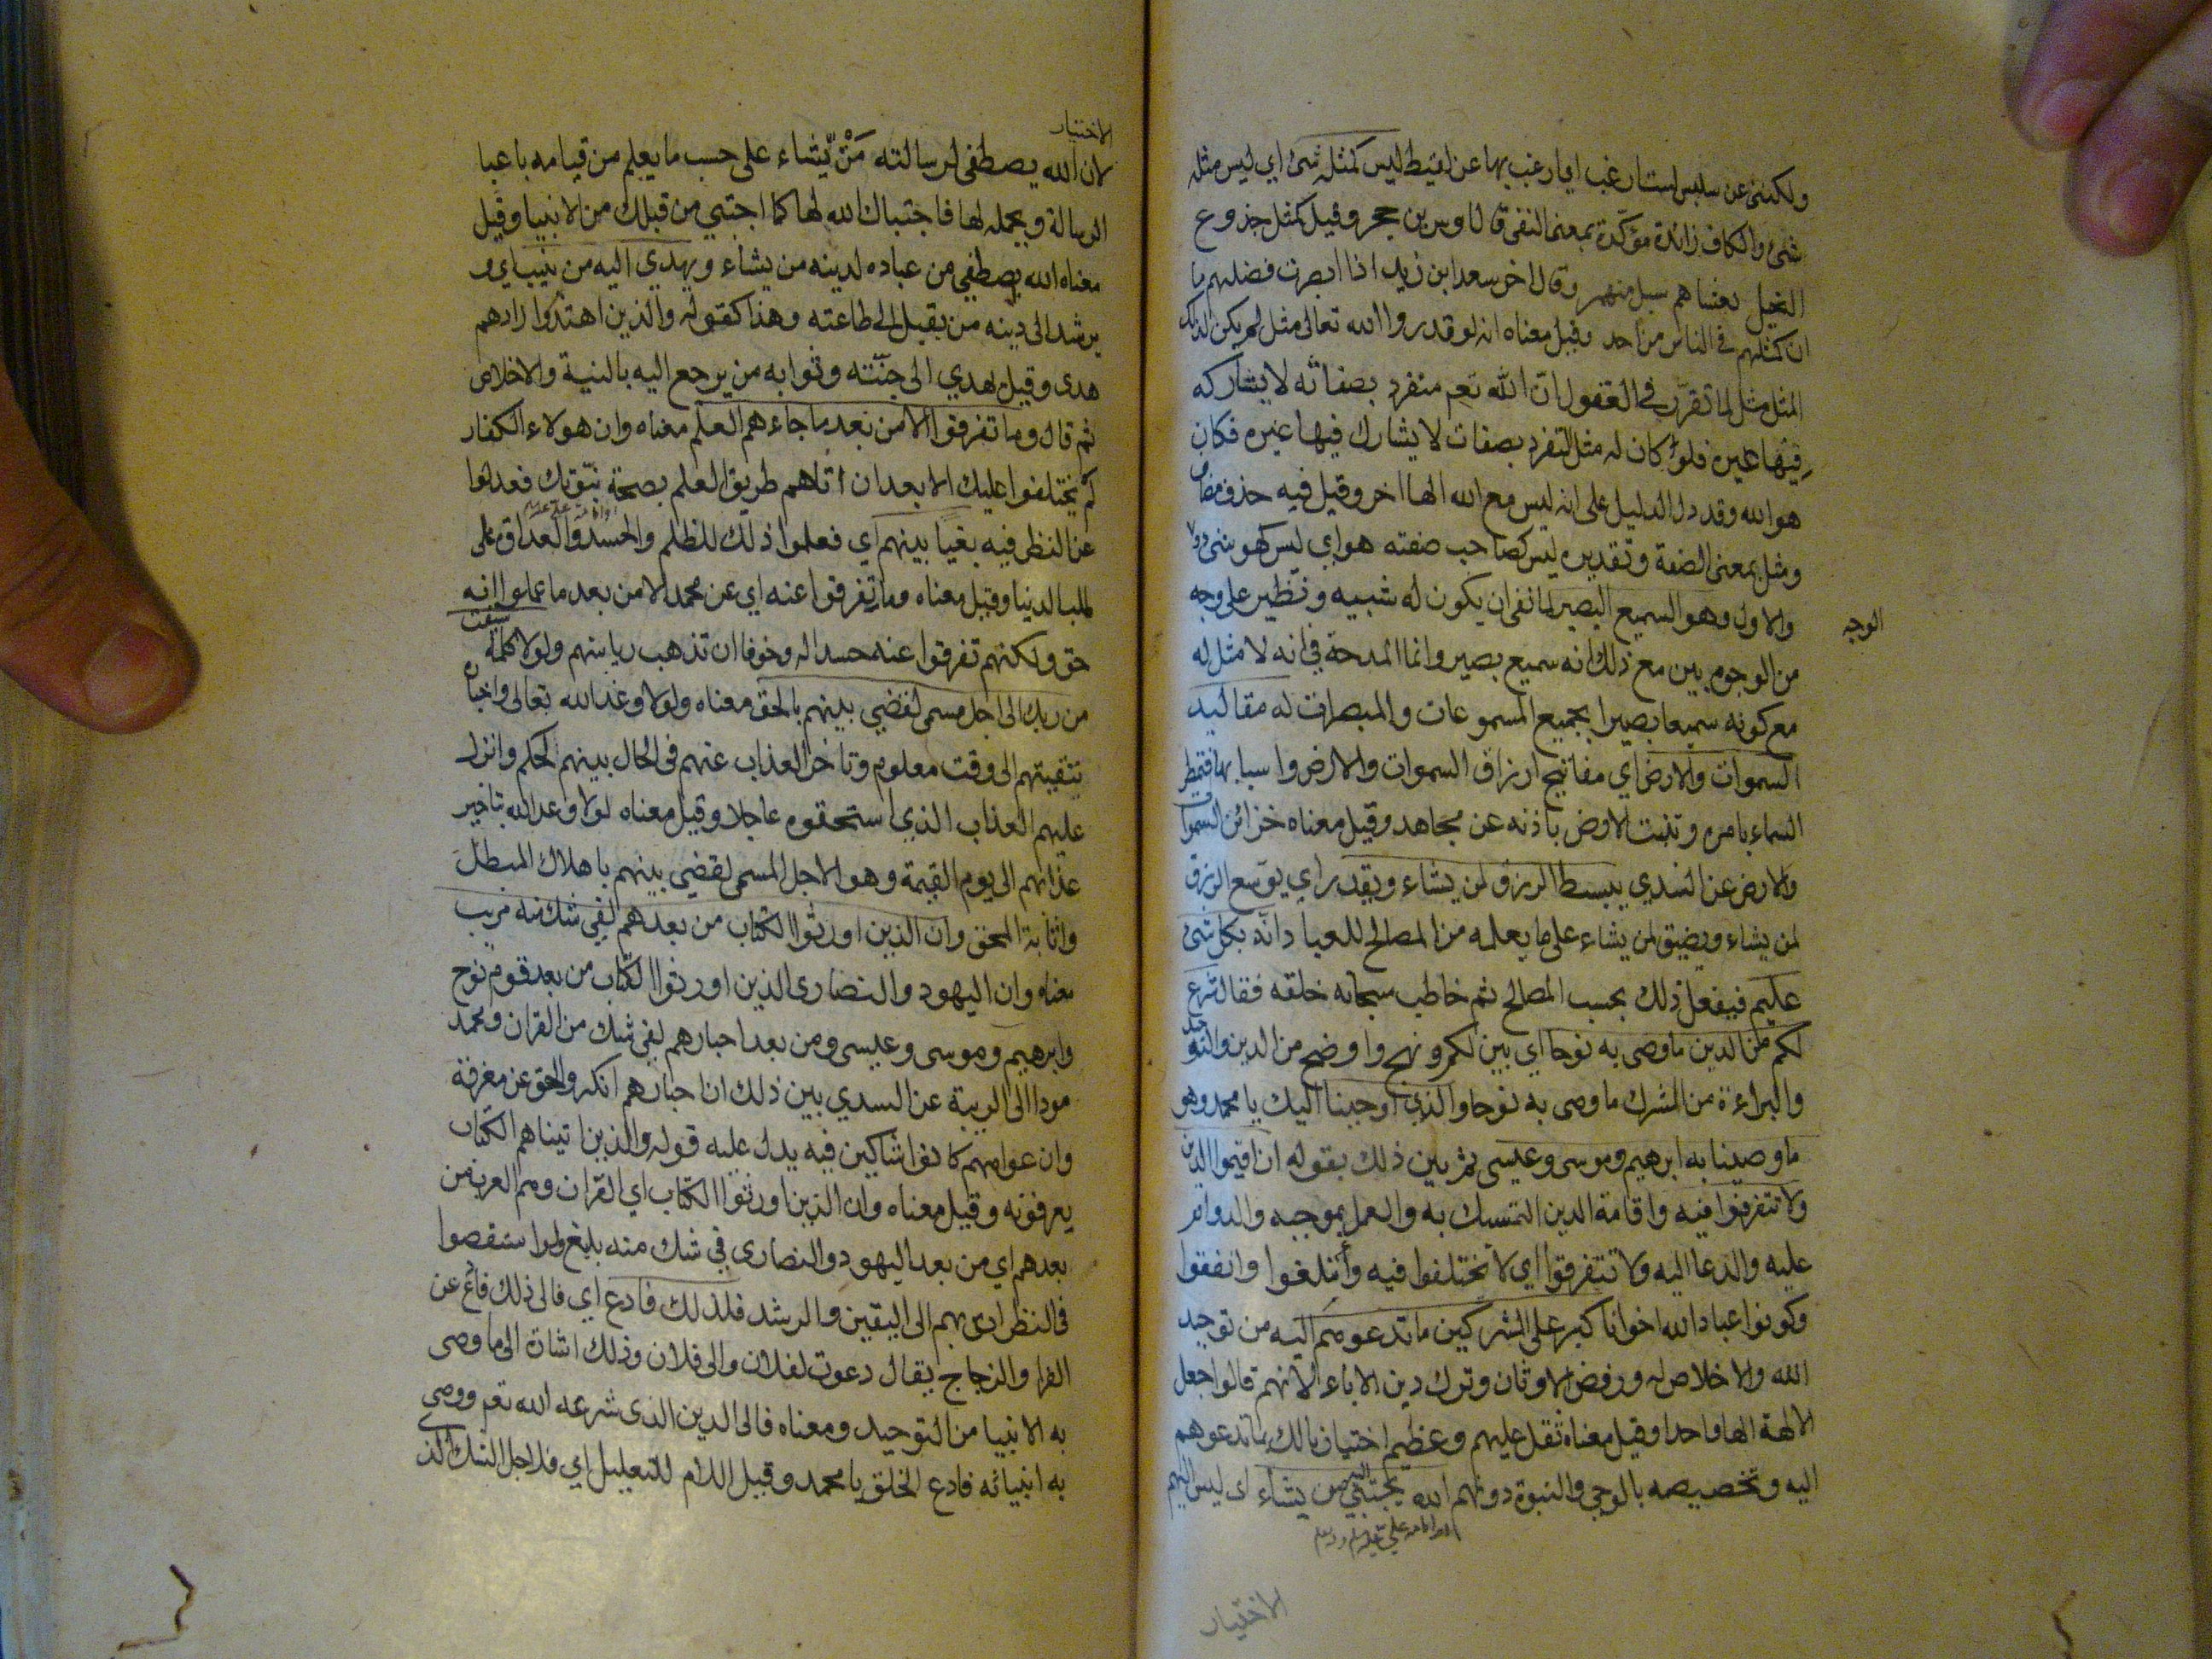 ولكننى عن سلبس استار غب ايها رغب بها عن ليس كمثله شئ اي ليس مثله
شئ والكاف زائدة مؤكدة بمعنى النفى قال اوس بن حجر وقيل كمثل جذوع
النخيل تغشاهم سبل منهمر وقال اخر سعد ابن زيد اذا ابصرت فضلهم ما
ان كمثلهم فى الناس من احد وقيل معناه انه لو قدر والله تعالى مثل لم يكن لذلك
المثل مثل لما تقرر فى العقول ان الله تعم متفرد بصفاته لا يشاركه
فيها غيره فلو كان له مثل لتفرد بصفات لا يشارك فيها غيره فكان
هو الله وقد دل الدليل على انه ليس مع الله الها اخر وقيل فيه حذف مضاف
ومثل بمعنى الصفة وتقديره ليس كصاحب صفته هو اي ليس كهو شئ
والاول وهو السميع البصير لما نفى ان يكون له شبيه ونظير على وجه
الوجه
من الوجوه بين مع ذلك انه سميع بصير وانما المدحة فى انه لا مثل له
مع كونه سميعا بصيرا بجميع المسموعات والمبصرات له مقاليد
السموات والارض اي مفاتيح ارزاق السموات والارض واسبابها فتمطر
السماء بامره وتنبت الارض باذنه عن مجاهد وقيل معناه خزائن السموات
والارض عن السدي يبسط الرزق لمن يشاء ويقدر اي يوسع الرزق
لمن يشاء ويضيق لمن يشاء على ما يعلمه من المصالح للعباد انه بكل شئ
عليم فيفعل ذلك بحسب المصالح ثم خاطب سبحانه خلقه فقال شرع
لكم من الدين ما وصى به نوحا اي بين لكم ونهج واوضح من الدين والتوحيد
والبراءة من الشرك ما وصى به نوحا والذي اوحينا اليك يا محمد وهو
ما وصينا به ابرهيم وموسى وعيسى ثم بين ذلك بقوله ان اقيموا الدين
ولا تتفرقوا فيه واقامة الدين التمسك به والعمل بموجبه والدوام
عليه والدعا اليه ولا تتفرقوا اي لا تختلفوا فيه وأتلفوا واتفقوا
وكونوا عباد الله اخوانا كبر على المشركين ما تدعوهم اليه من توحيد
الله والاخلاص له ورفض الاوثان وترك دين الاباء لانهم قالوا اجعل
الالهة الها واحدا وقيل معناه ثقل عليهم وعظم اختيارنا لك بما تدعوهم
اليه وتخصيصه بالوحي والنبوة دونهم الله يجتبي اليه من يشاء اى ليس اليهم
الاختيار
الاختيار
لان الله يصطفى لرسالته مَنْ يّشاء على حسب ما يعلم من قيامه باعبا
الرسالة ويجمله لها فاجتباك الله لها كما اجتبي من قبلك من الانبيا وقيل
معناه الله يصطفي من عباده لدينه من يشاء ويهدي اليه من ينيب اي و
يرشد الى دينه من يقبل الى طاعته وهذا كقوله والذين اهتدوا زادهم
هدى وقيل يهدي الى جنّته وثوابه من يرجع اليه بالنية والاخلاص
ثم قال وما تفرقوا الا من بعد ما جاءهم العلم معناه وان هولاء الكفار
لم يختلفوا عليك الا بعد ان اتاهم طريق العلم بصحة نبّوتك فعدلوا
عن النظر فيه بغيا بينهم اي فعلوا ذلك للظلم والحسد والعداوة على
طلب الدنيا وقيل معناه وما تفرقوا عنه اي عن محمد الا من بعد ما علموا انه
حق ولكنهم تفرقوا عنه حسدا له وخوفا ان تذهب رياستهم ولولا كلمة سبقت
من ربك الى اجل مسمى لقضي بينهم بالحق معناه ولولا وعد الله تعالى واخباره
بتبقيتهم الى وقت معلوم وتاخر العذاب عنهم فى الحال بينهم الحكم وانزل
عليهم العذاب الذي استحقوه عاجلا وقيل معناه لولا وعد الله بتاخير
عذابهم الى يوم القيمة وهو الاجل المسمى لقضي بينهم باهلاك المبطل
واثابة المحق وان الذين اورثوا الكتاب من بعدهم لفي شك منه مريب
معناه وان اليهود والنصارى الذين اورثوا الكتاب من بعد قوم نوح
وابرهيم وموسى وعيسى ومن بعد احبارهم لفى شك من القران ومحمد
مودا الى الريبة عن السدي بين ذلك ان احبارهم انكروا الحق عن معرفة
وان عوامهم كانوا شاكين فيه يدل عليه قوله والذين اتيناهم الكتاب
يعرفونه وقيل معناه وان الذين اورثوا الكتاب اي القران وهم العرب من
بعدهم اي من بعد اليهود والنصارى في شك منه بليغ ولو استقصوا
فى النظر ادى بهم الى اليقين والرشد فلذلك فادع اي فالى ذلك فادع عن
الفرا والزجاج يقال دعوت لفلان والى فلان وذلك اشارة الى ما وصى
به الانبيا من التوحيد ومعناه فالى الدين الذى شرعه الله تعم ووصى
به انبيائه فادع الخلق يا محمد وقيل اللام للتعليل اي فلاجل الشك الذ